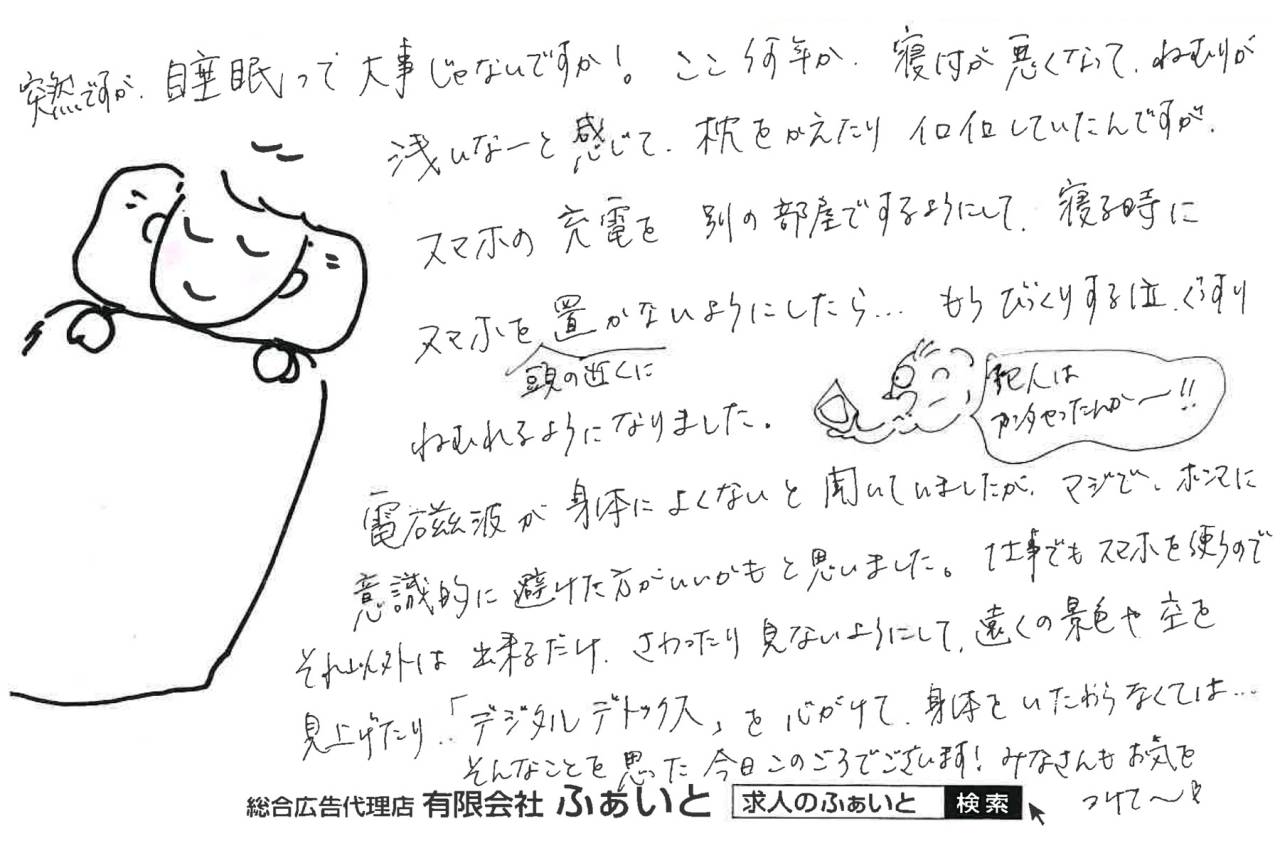 突然ですが、睡眠って大事じゃないですか！ここ何年か、寝付が悪くなって、ねむりが
浅いなーと感じて、枕をかえたりイロイロしていたんですが、
スマホの充電を別の部屋でするようにして、寝る時に
スマホを置かないようにしたら… もうびっくりする位、ぐっすり
頭の近くに
ねむれるようになりました。
犯人は
アンタやったんかー!!
電磁波が身体によくないと聞いていましたが、マジで、ホンマに
意識的に避けた方がいいかもと思いました。仕事でもスマホを使うので
それ以外は出来るだけ、さわったり見ないようにして、遠くの景色や空を
見上げたり…「デジタルデトックス」を心がけて、身体をいたわらなくては…
そんなことを思った今日このごろでございます！みなさんもお気を
つけて〜♡
総合広告代理店 有限会社 ふぁいと 求人のふぁいと 検索